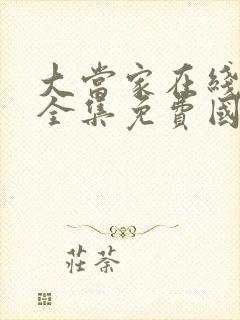 大當家在綫
全集免費國
莊荼